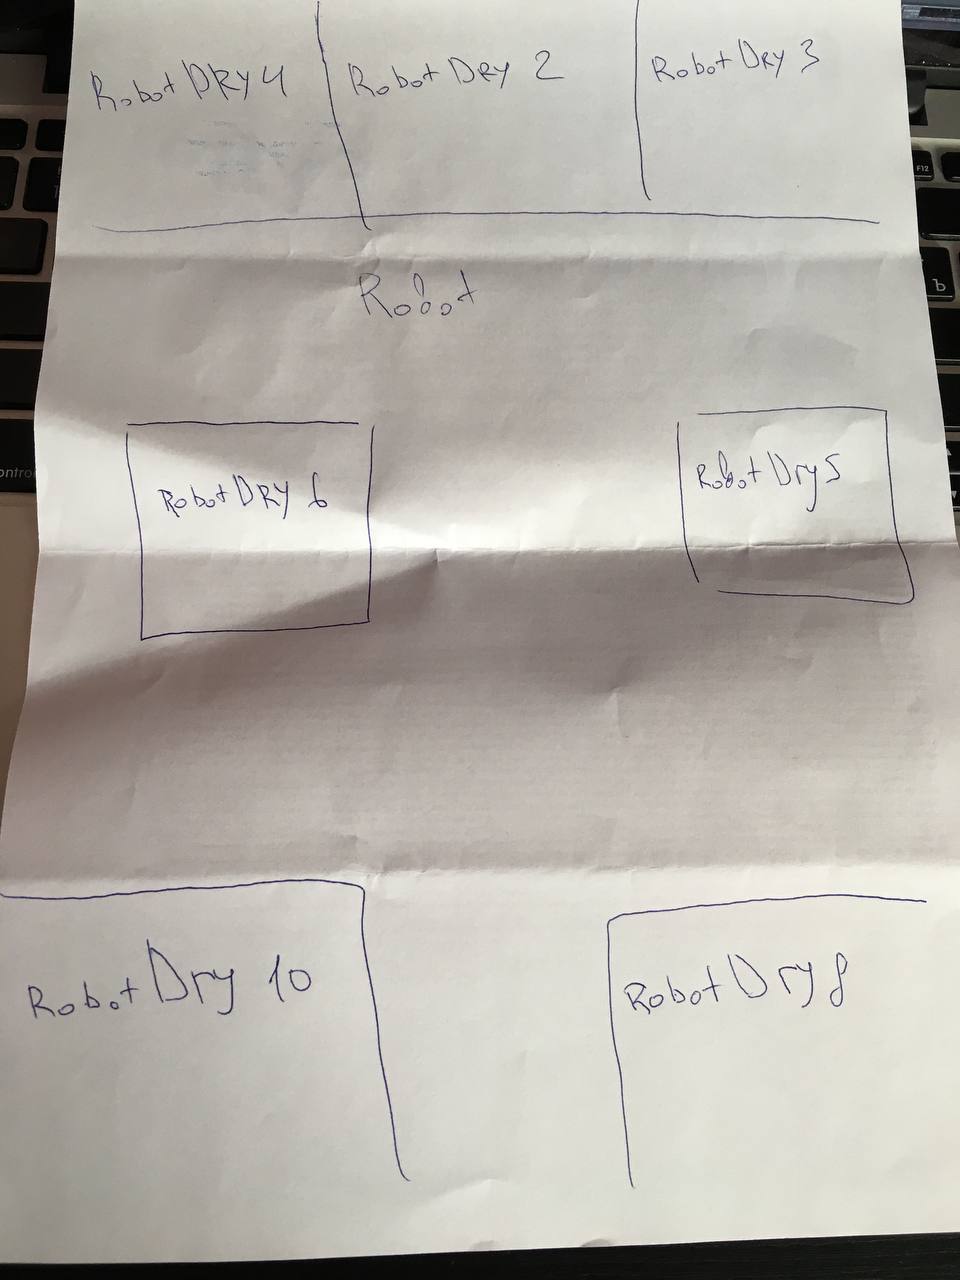 Robot DRY 4
Robot DRY 2
Robot DRY 3
Robot
Robot DRY 6
Robot Dry 5
Robot Dry 10
Robot Dry 8
F12
Ъ